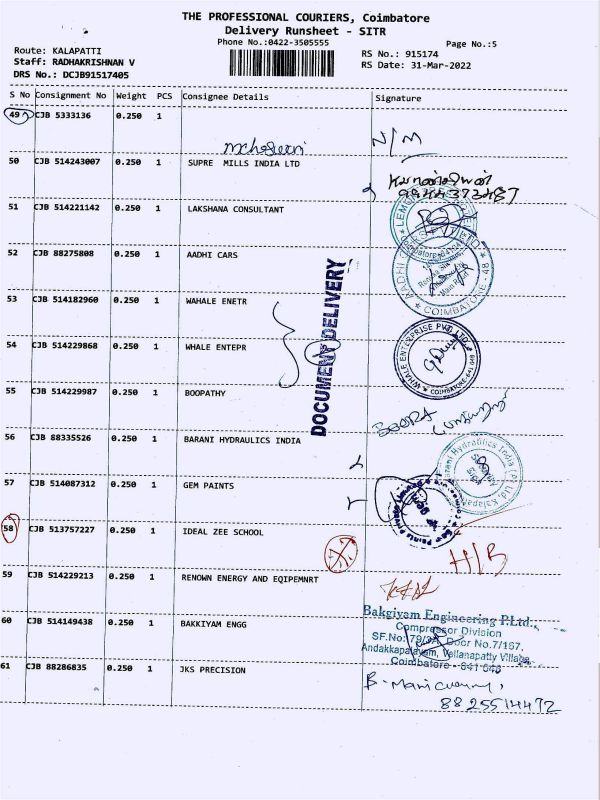 THE PROFESSIONAL COURIERS, Coimbatore
Delivery Runsheet - SITR
Phone No.:0422-3505555
Page No.:5
Route: KALAPATTI
Staff: RADHAKRISHNAN V
DRS No.: DCJB91517405
RS No.: 915174
RS Date: 31-Mar-2022
S No Consignment No Weight PCS Consignee Details Signature
49 CJB 5333136 0.250 1 N/M
50 CJB 514243007 0.250 1 SUPRE MILLS INDIA LTD
9944373487
51 CJB 514221142 0.250 1 LAKSHANA CONSULTANT
52 CJB 88275808 0.250 1 AADHI CARS
AADHI CARS
COIMBATORE 48
DOCUMENT DELIVERY
53 CJB 514182960 0.250 1 WAHALE ENETR
54 CJB 514229868 0.250 1 WHALE ENTEPR
WHALE ENTERPRISE PVT LTD.
COIMBATORE 641 048
55 CJB 514229987 0.250 1 BOOPATHY
56 CJB 88335526 0.250 1 BARANI HYDRAULICS INDIA
Barani Hydraulics India (P) Ltd
57 CJB 514087312 0.250 1 GEM PAINTS
58 CJB 513757227 0.250 1 IDEAL ZEE SCHOOL
H/B
59 CJB 514229213 0.250 1 RENOWN ENERGY AND EQIPEMNRT
60 CJB 514149438 0.250 1 BAKKIYAM ENGG
Bakgiyam Engineering P.Ltd.,
Compressor Division
SF.No: 79/3A, Door No.7/167,
Andakkapalayam, Vellanapatty Village,
Coimbatore - 641 048
61 CJB 88286835 0.250 1 JKS PRECISION
8825514472